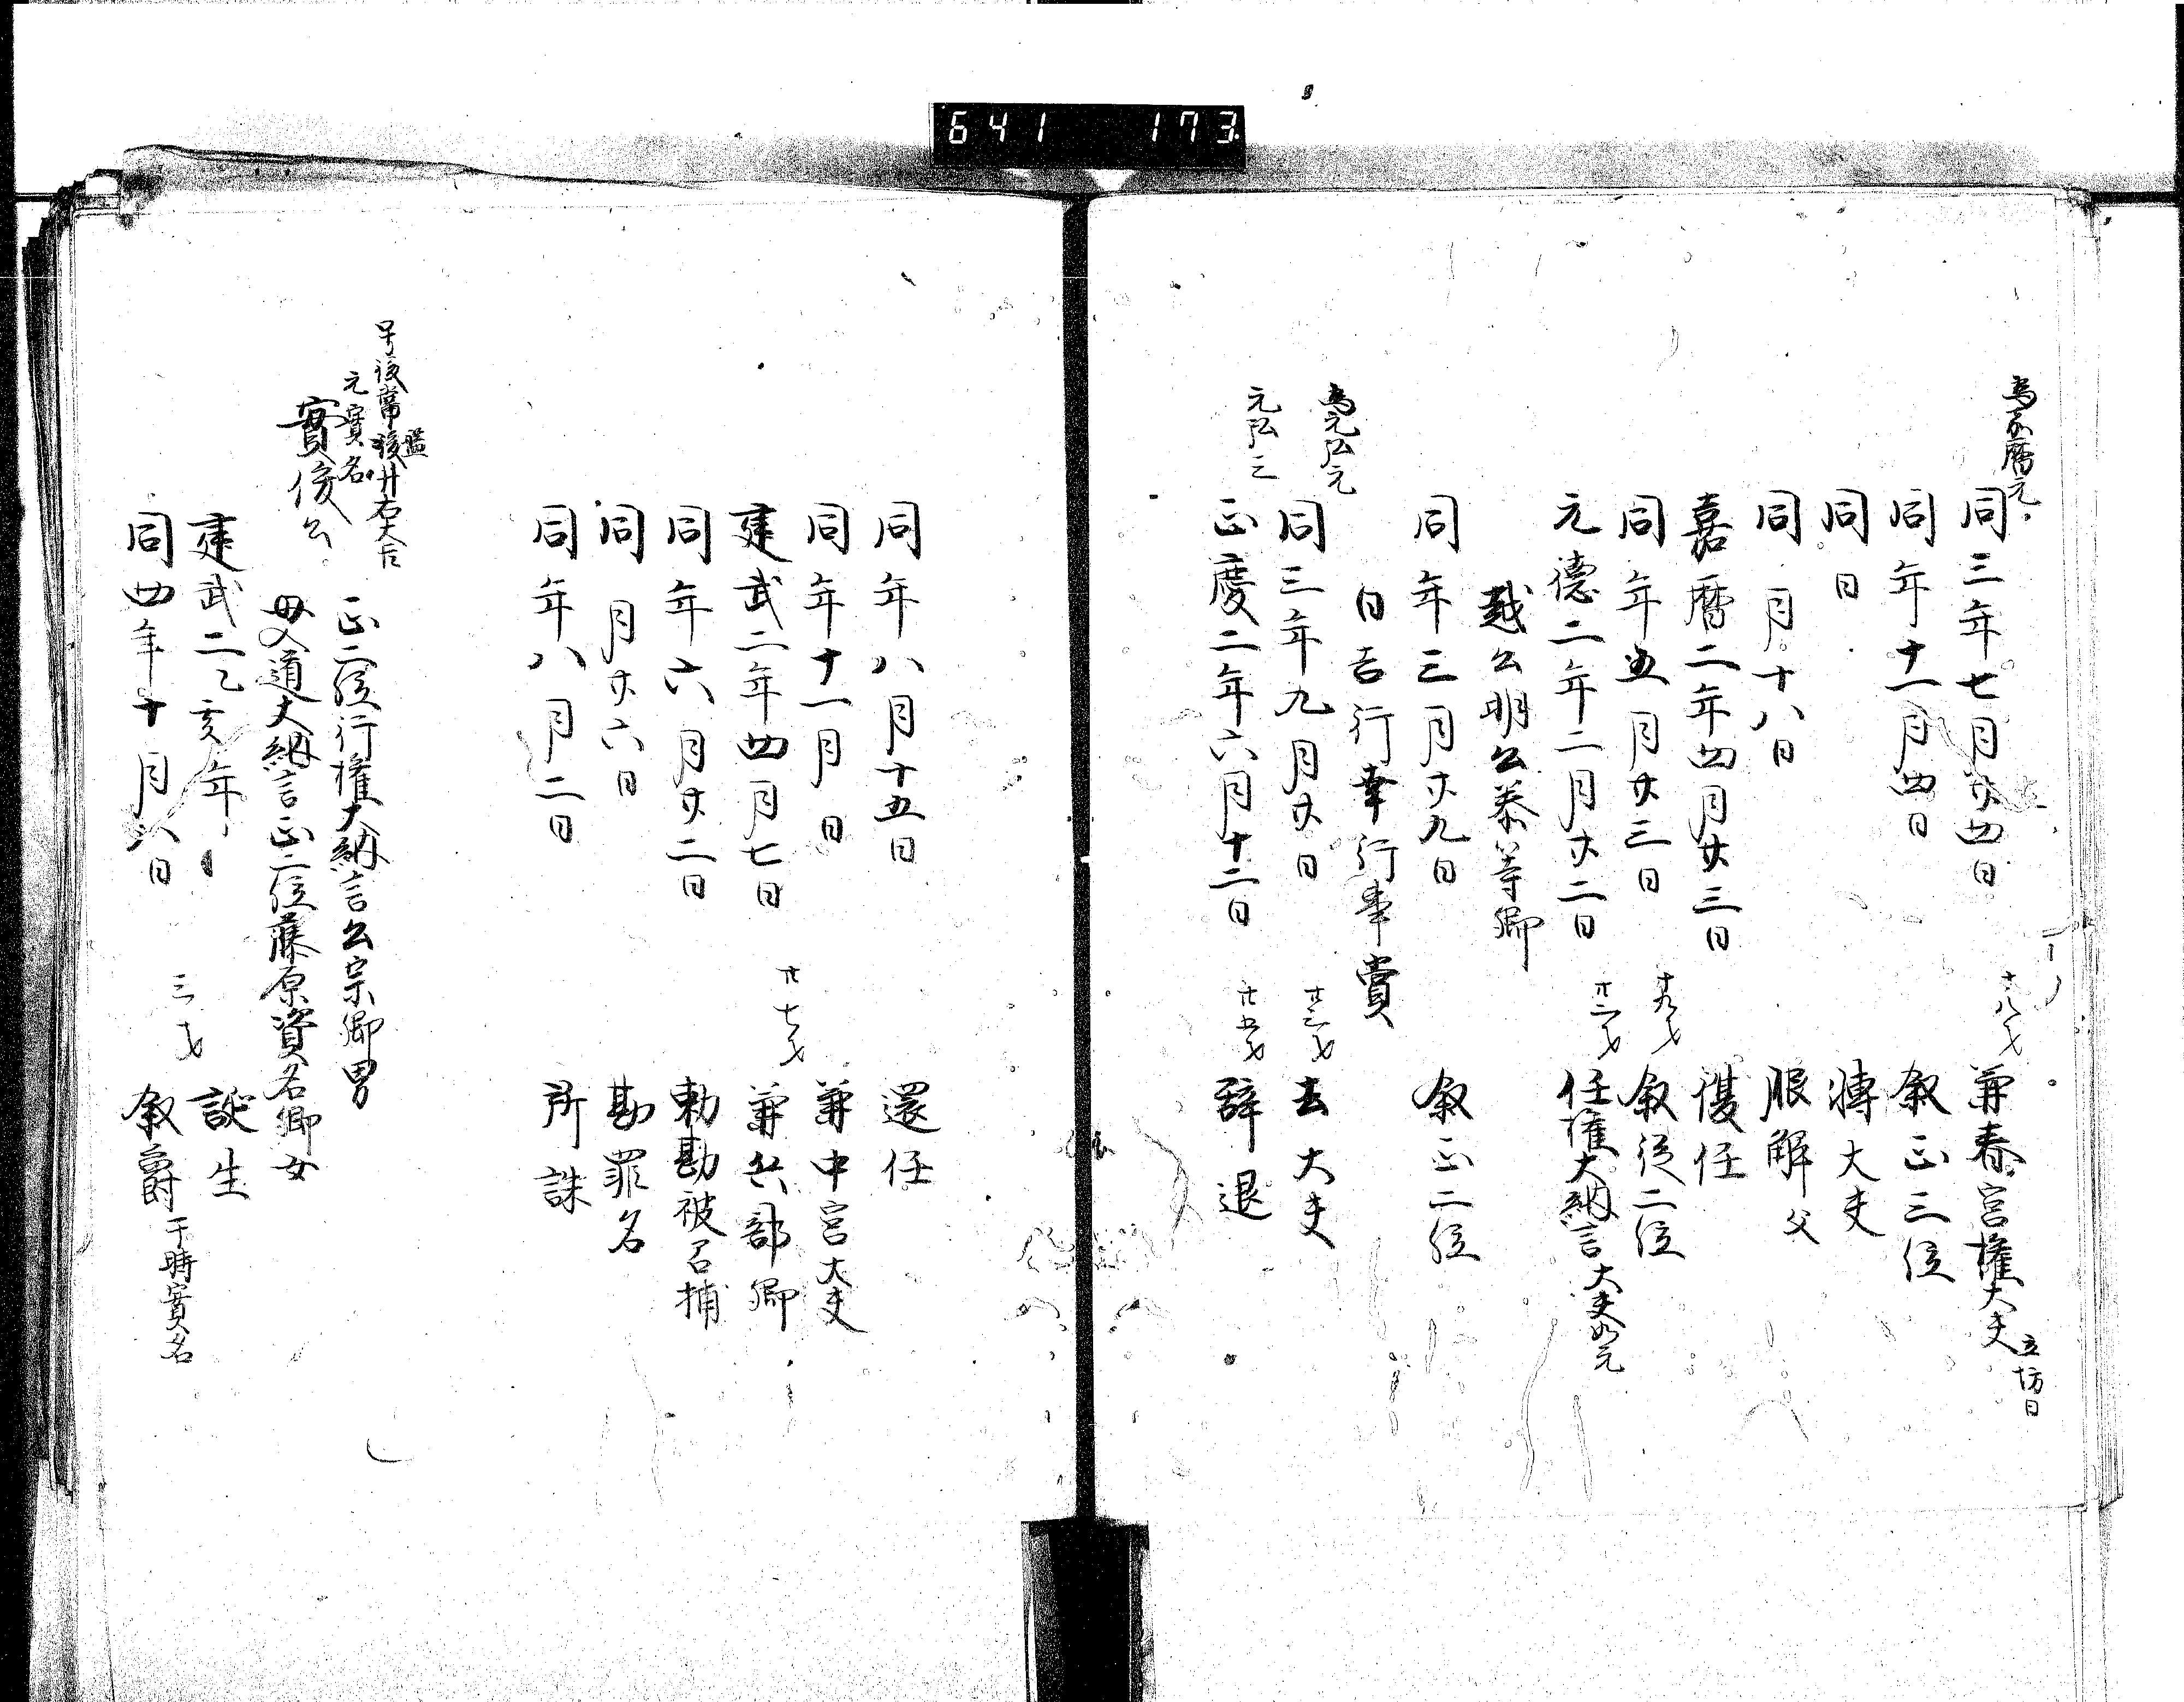 641 173
為嘉暦元
同三年七月廿四日 十八才 兼春宮権大夫 立坊日
同年十一月四日 叙正三位
同日 轉大夫
同月十八日 服解父
嘉暦二年四月廿三日 復任
同年五月廿三日 十九才 叙従二位
元徳二年二月廿二日 廿二才 任権大納言 大夫如元
越公明公泰等卿
同年三月廿九日 叙正二位
日吉行幸行事賞
為元弘元
同三年九月廿日 廿三才 去大夫
元弘三
正慶二年六月十二日 廿五才 辞退
同年八月十五日 還任
同年十一月日 兼中宮大夫
建武二年四月七日 廿七才 兼兵部卿
同年六月廿二日 勅勘被召捕
同月廿六日 勘罪名
同年八月二日 所誅
号後常盤井右大臣
元實名
實俊公
正二位行権大納言公宗卿男
母入道大納言正二位藤原資名卿女
建武二乙亥年 誕生
同四年十月六日 三才 叙爵 于時實名